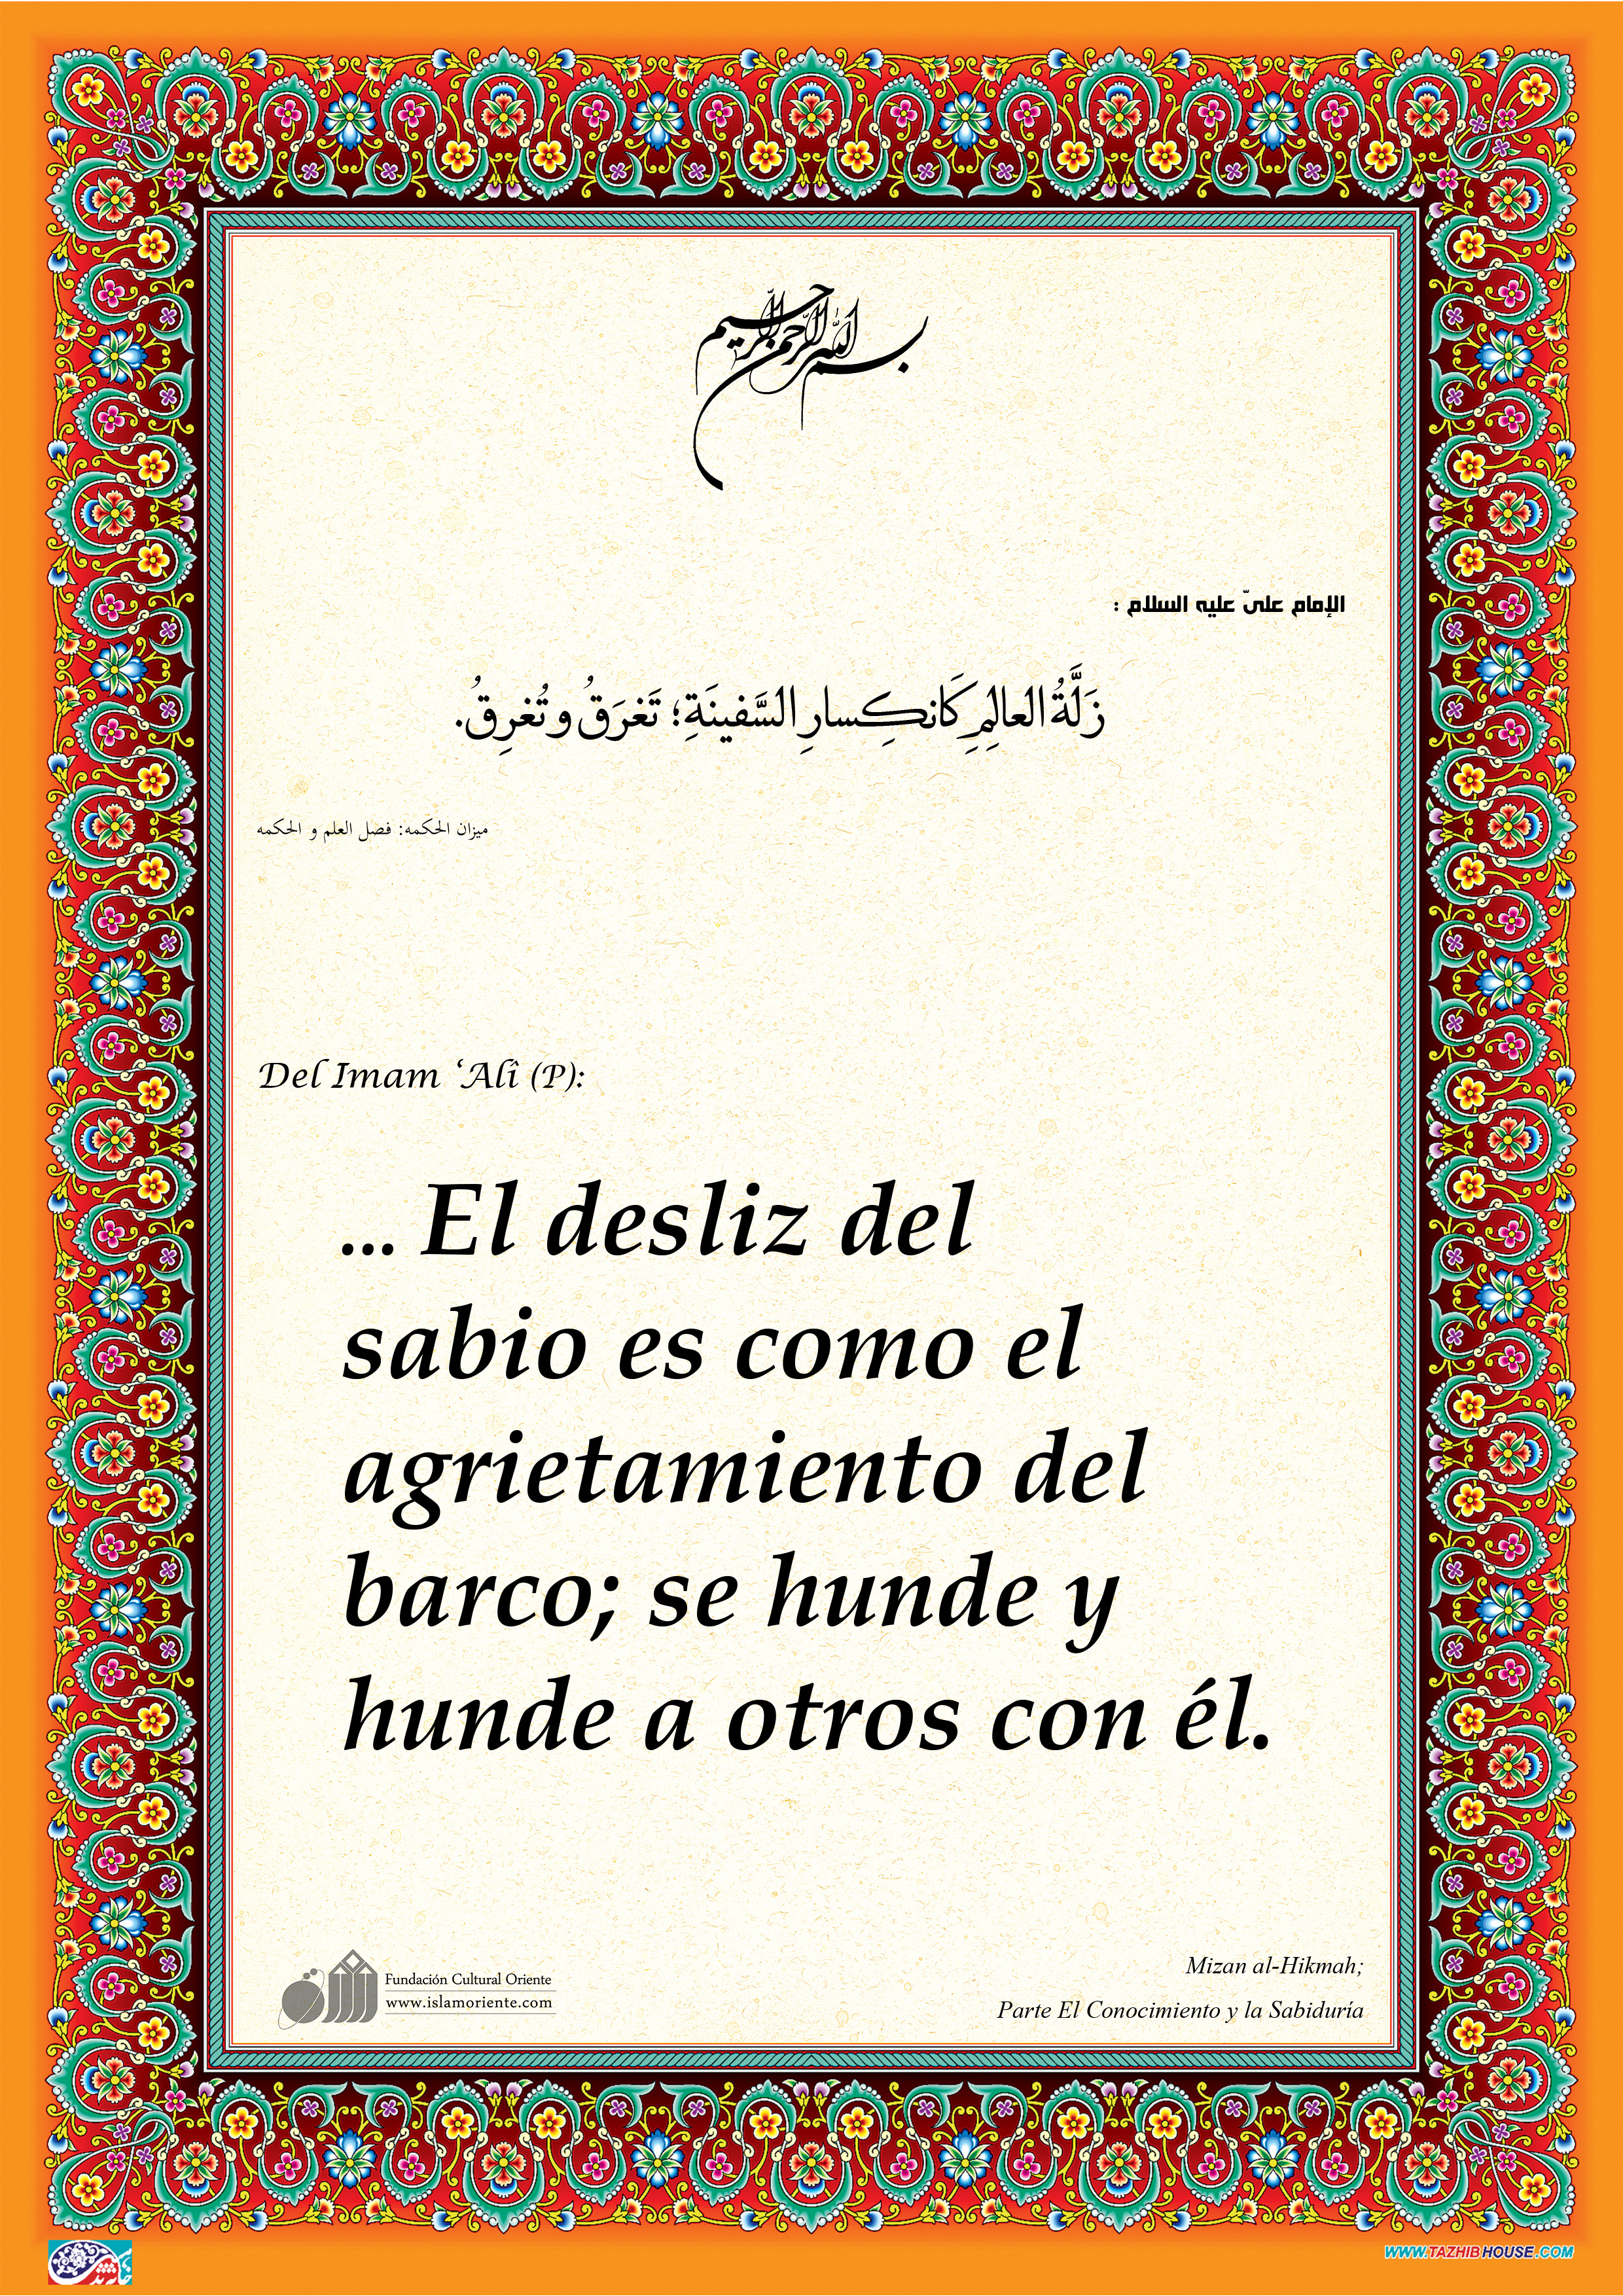 بسم الله الرحمن الرحيم
الإمام علىّ عليه السلام :
زَلَّةُ العالِمِ كَانكِسارِ السَّفينَةِ؛ تَغرَقُ و تُغرِقُ.
ميزان الحكمه: فصل العلم و الحكمه
Del Imam ‘Alî (P):
... El desliz del
sabio es como el
agrietamiento del
barco; se hunde y
hunde a otros con él.
Fundación Cultural Oriente
www.islamoriente.com
Mizan al-Hikmah;
Parte El Conocimiento y la Sabiduría
WWW.TAZHIBHOUSE.COM